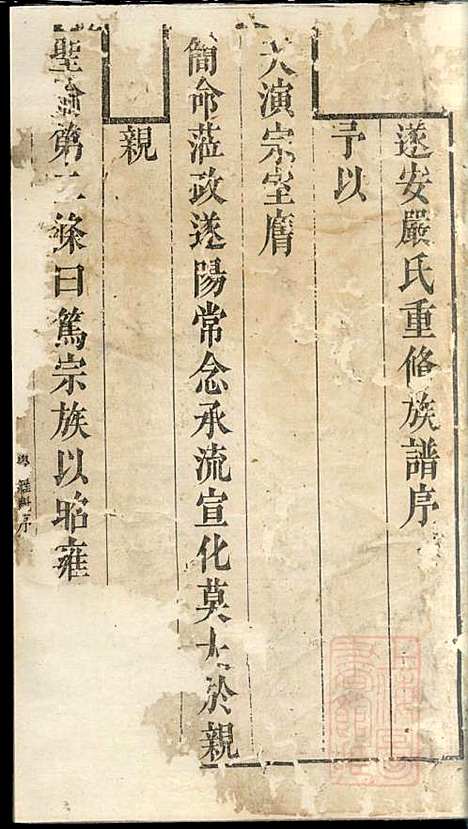 遂安嚴氏重脩族譜序
予以
天演宗室膺
簡命蒞政遂陽常念承流宣化莫大於親
親
聖諭第二條曰篤宗族以昭雍